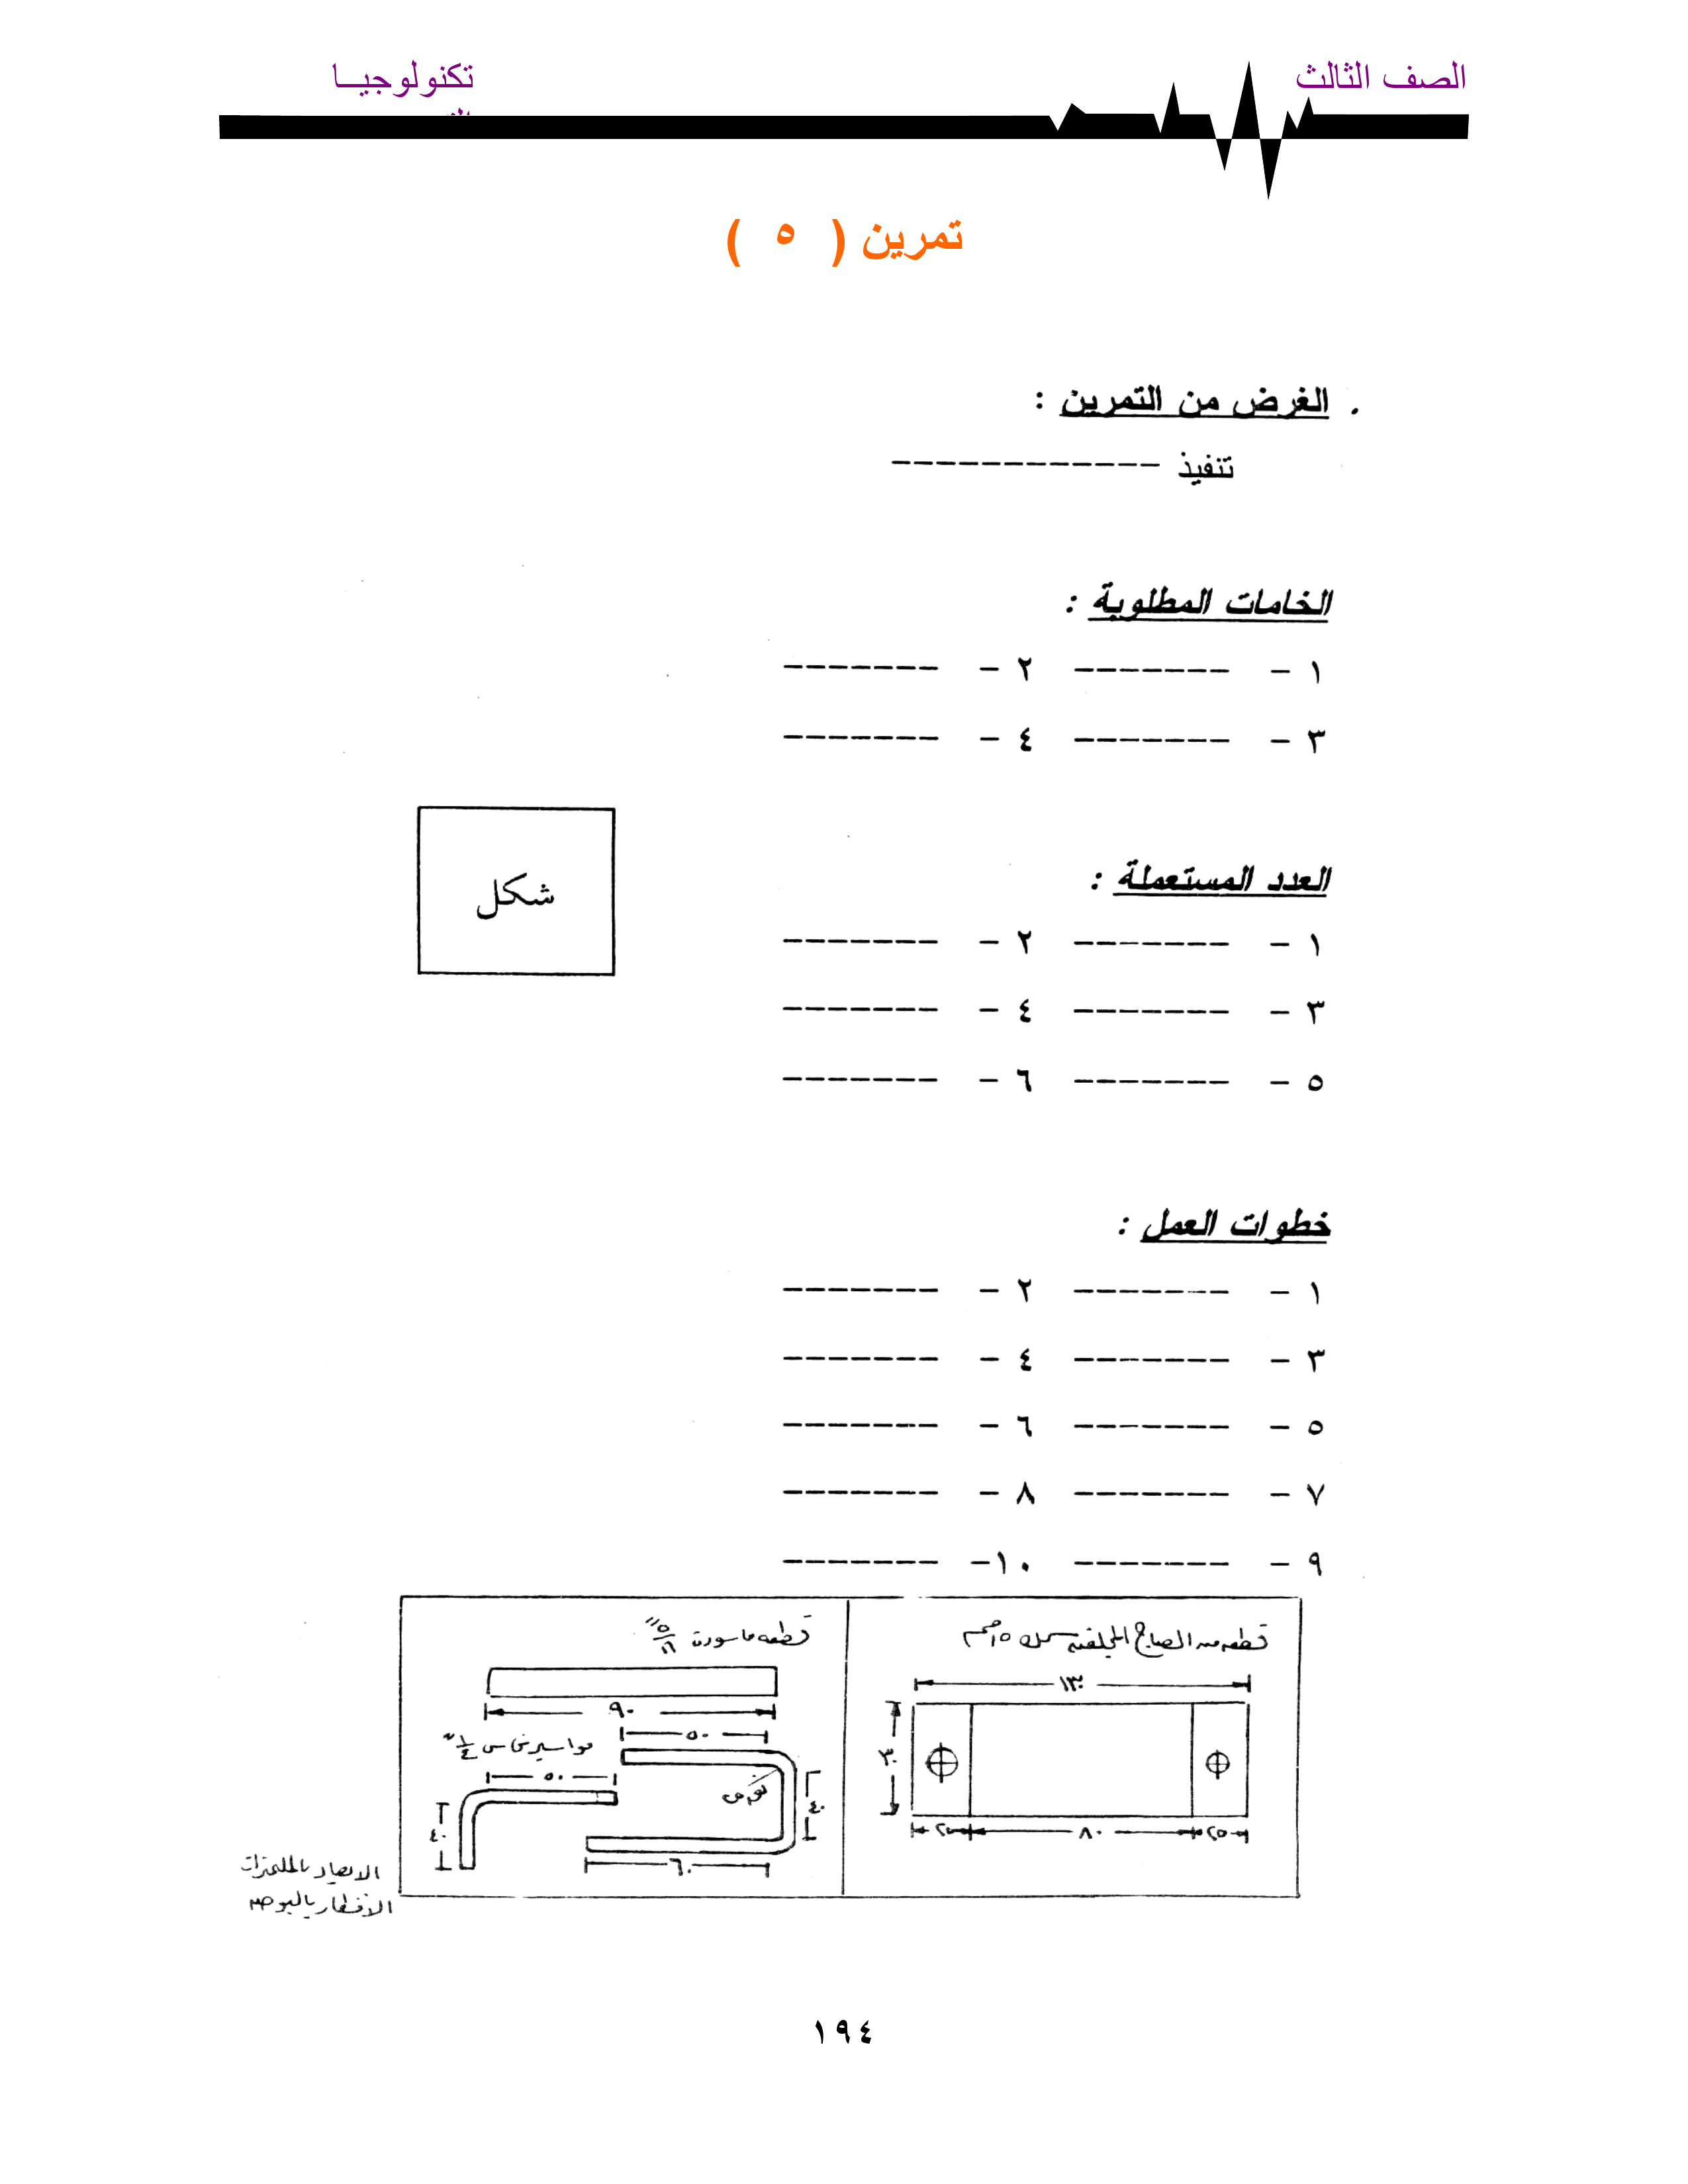 الصف الثالث
تكنولوجيــا
تمرين ( ٥ )
. الغرض من التمرين :
تنفيذ ------------
الخامات المطلوبة :
١ - ------- ٢ - -------
٣ - ------- ٤ - -------
العدد المستعملة :
شكل
١ - ------- ٢ - -------
٣ - ------- ٤ - -------
٥ - ------- ٦ - -------
خطوات العمل :
١ - ------- ٢ - -------
٣ - ------- ٤ - -------
٥ - ------- ٦ - -------
٧ - ------- ٨ - -------
٩ - ------- ١٠- -------
قطعه من الصاج المجلفن سمك مم
١٣٠
٣٠
٢٥ ٨٠ ٢٥
قطعه ماسورة ٥/١٦"
٩٠
٥٠
مواسير نحاس ١/٤"
٥٠
٤٠
٤٠
٦٠
الابعاد بالملليمترات
الاقطار بالبوصه
١٩٤